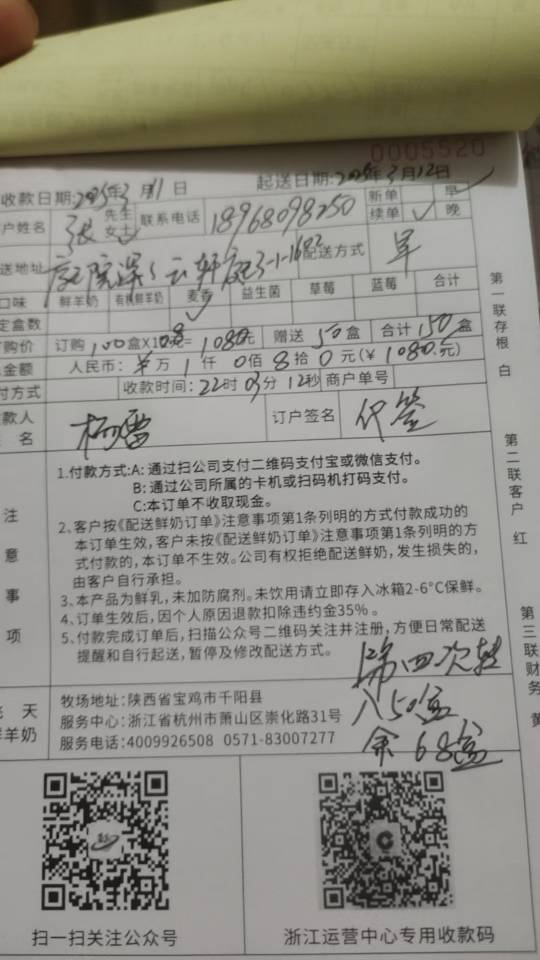 0005520
收款日期:2025年3月11日 起送日期:2025年3月12日
户姓名 张 先生 女士 联系电话 18968098250 新单 早
续单 晚
送地址 庭院深深云轩庭3-1-1682 配送方式 早
口味 鲜羊奶 有机鲜羊奶 麦香 益生菌 草莓 蓝莓 合计
定盒数
购价 订购100盒X10.8元=1080元 赠送50盒 合计150盒
金额 人民币: 万1仟0佰8拾0元(¥1080.元)
付方式 收款时间:22时03分12秒 商户单号
款人 名 杨雷 订户签名 代签
注意事项
1.付款方式:A:通过扫公司支付二维码支付宝或微信支付。
B:通过公司所属的卡机或扫码机打码支付。
C:本订单不收取现金。
2、客户按《配送鲜奶订单》注意事项第1条列明的方式付款成功的
本订单生效,客户未按《配送鲜奶订单》注意事项第1条列明的方
式付款的,本订单不生效。公司有权拒绝配送鲜奶,发生损失的,
由客户自行承担。
3、本产品为鲜乳,未加防腐剂。未饮用请立即存入冰箱2-6°C保鲜。
4、订单生效后,因个人原因退款扣除违约金35%。
5、付款完成订单后,扫描公众号二维码关注并注册,方便日常配送
提醒和自行起送,暂停及修改配送方式。
第四次转
八50盒
余68盒
天
鲜羊奶
牧场地址:陕西省宝鸡市千阳县
服务中心:浙江省杭州市萧山区崇化路31号
服务电话:4009926508 0571-83007277
扫一扫关注公众号
浙江运营中心专用收款码
第一联存根 白
第二联客户 红
第三联财务 黄